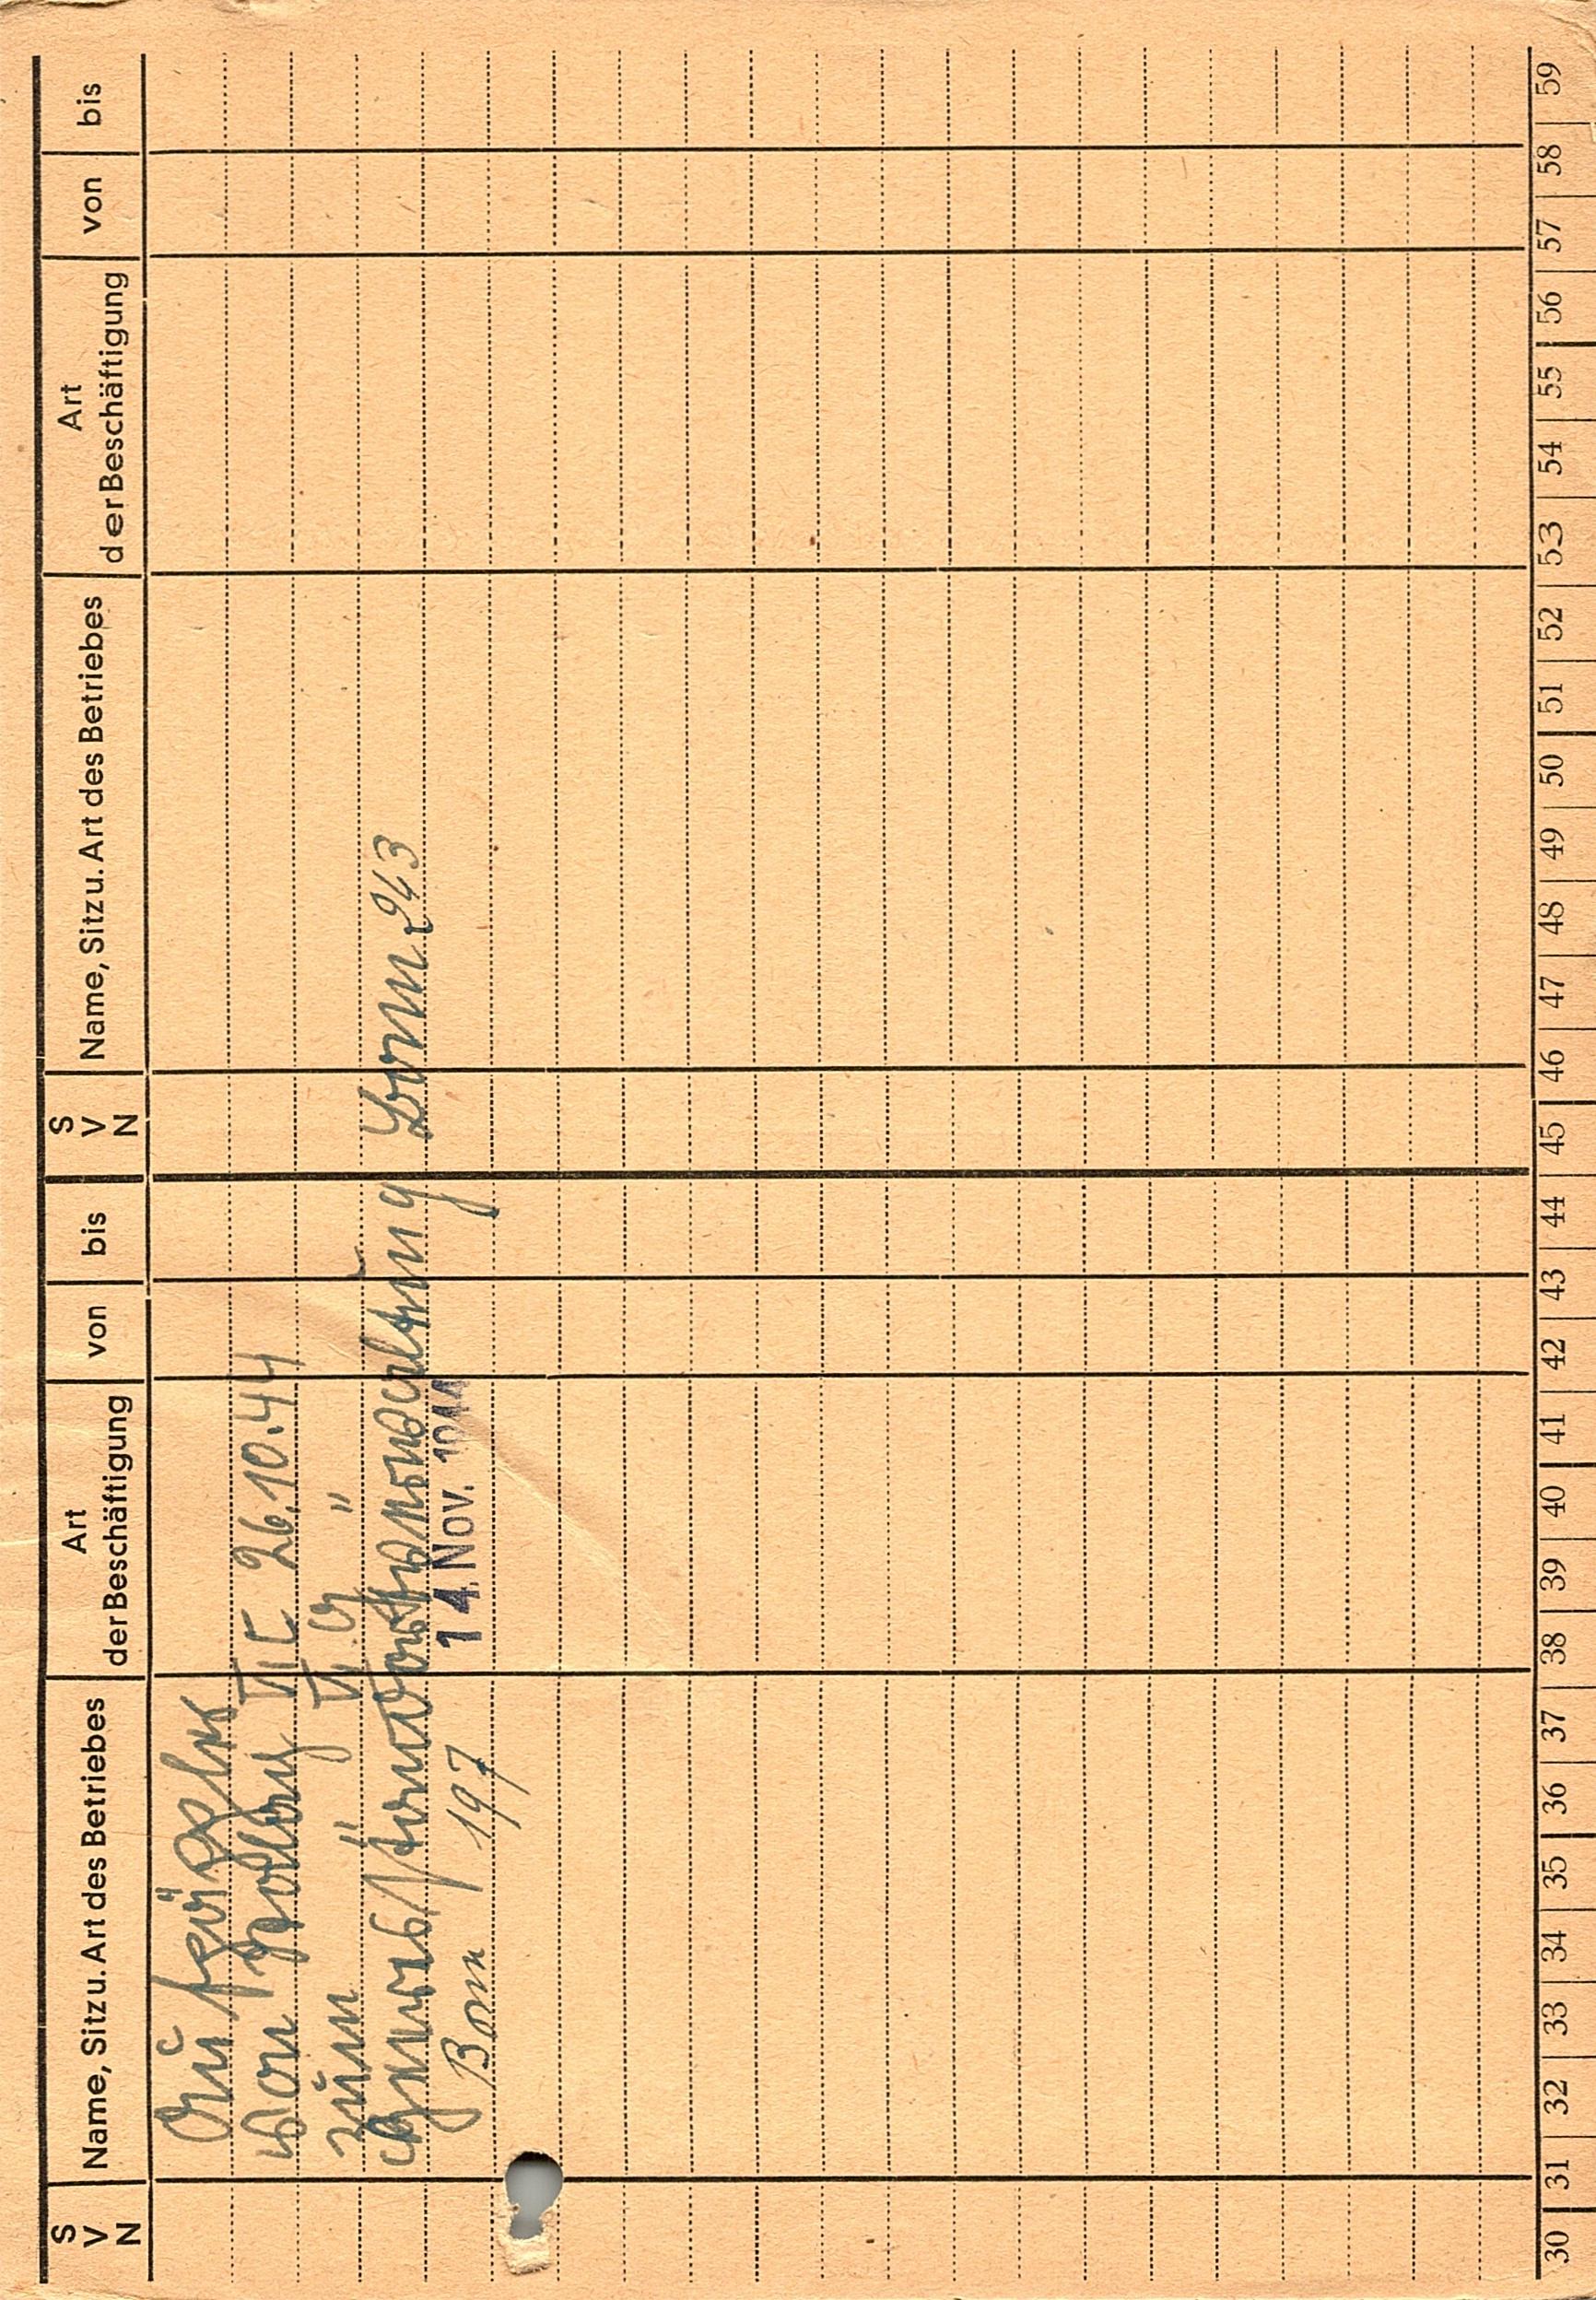 S V N | Name, Sitz u. Art des Betriebes | Art der Beschäftigung | von | bis | S V N | Name, Sitz u. Art des Betriebes | Art der Beschäftigung | von | bis
von VI C 26.10.44
zum " VI G "
Standortverwaltung Bonn 243
Bonn 197 14. Nov. 1944
30 31 32 33 34 35 36 37 38 39 40 41 42 43 44 45 46 47 48 49 50 51 52 53 54 55 56 57 58 59